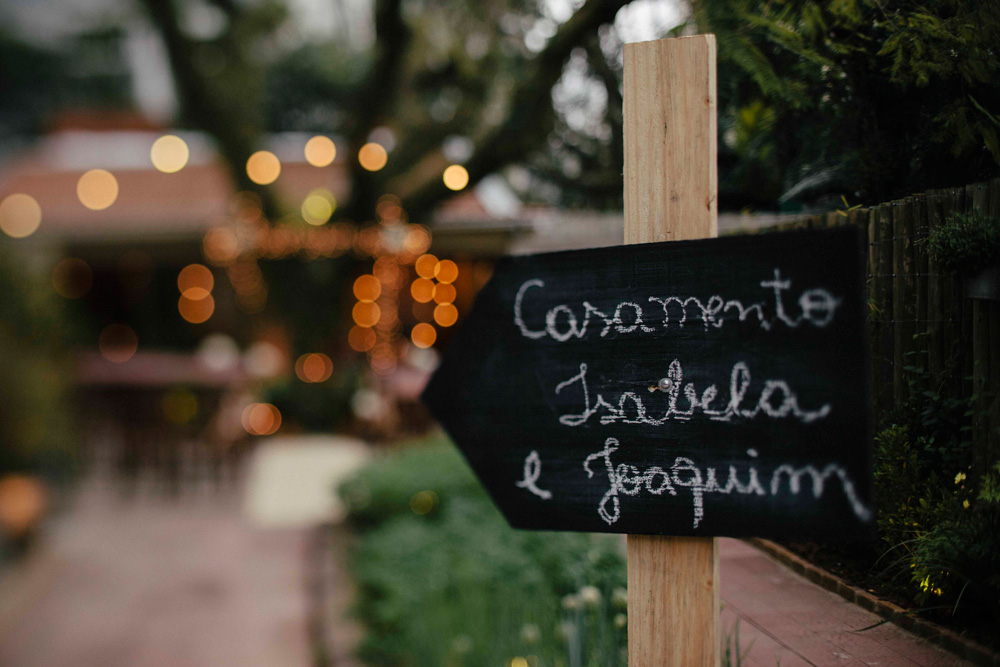 Casamento
Isabela
e Joaquim